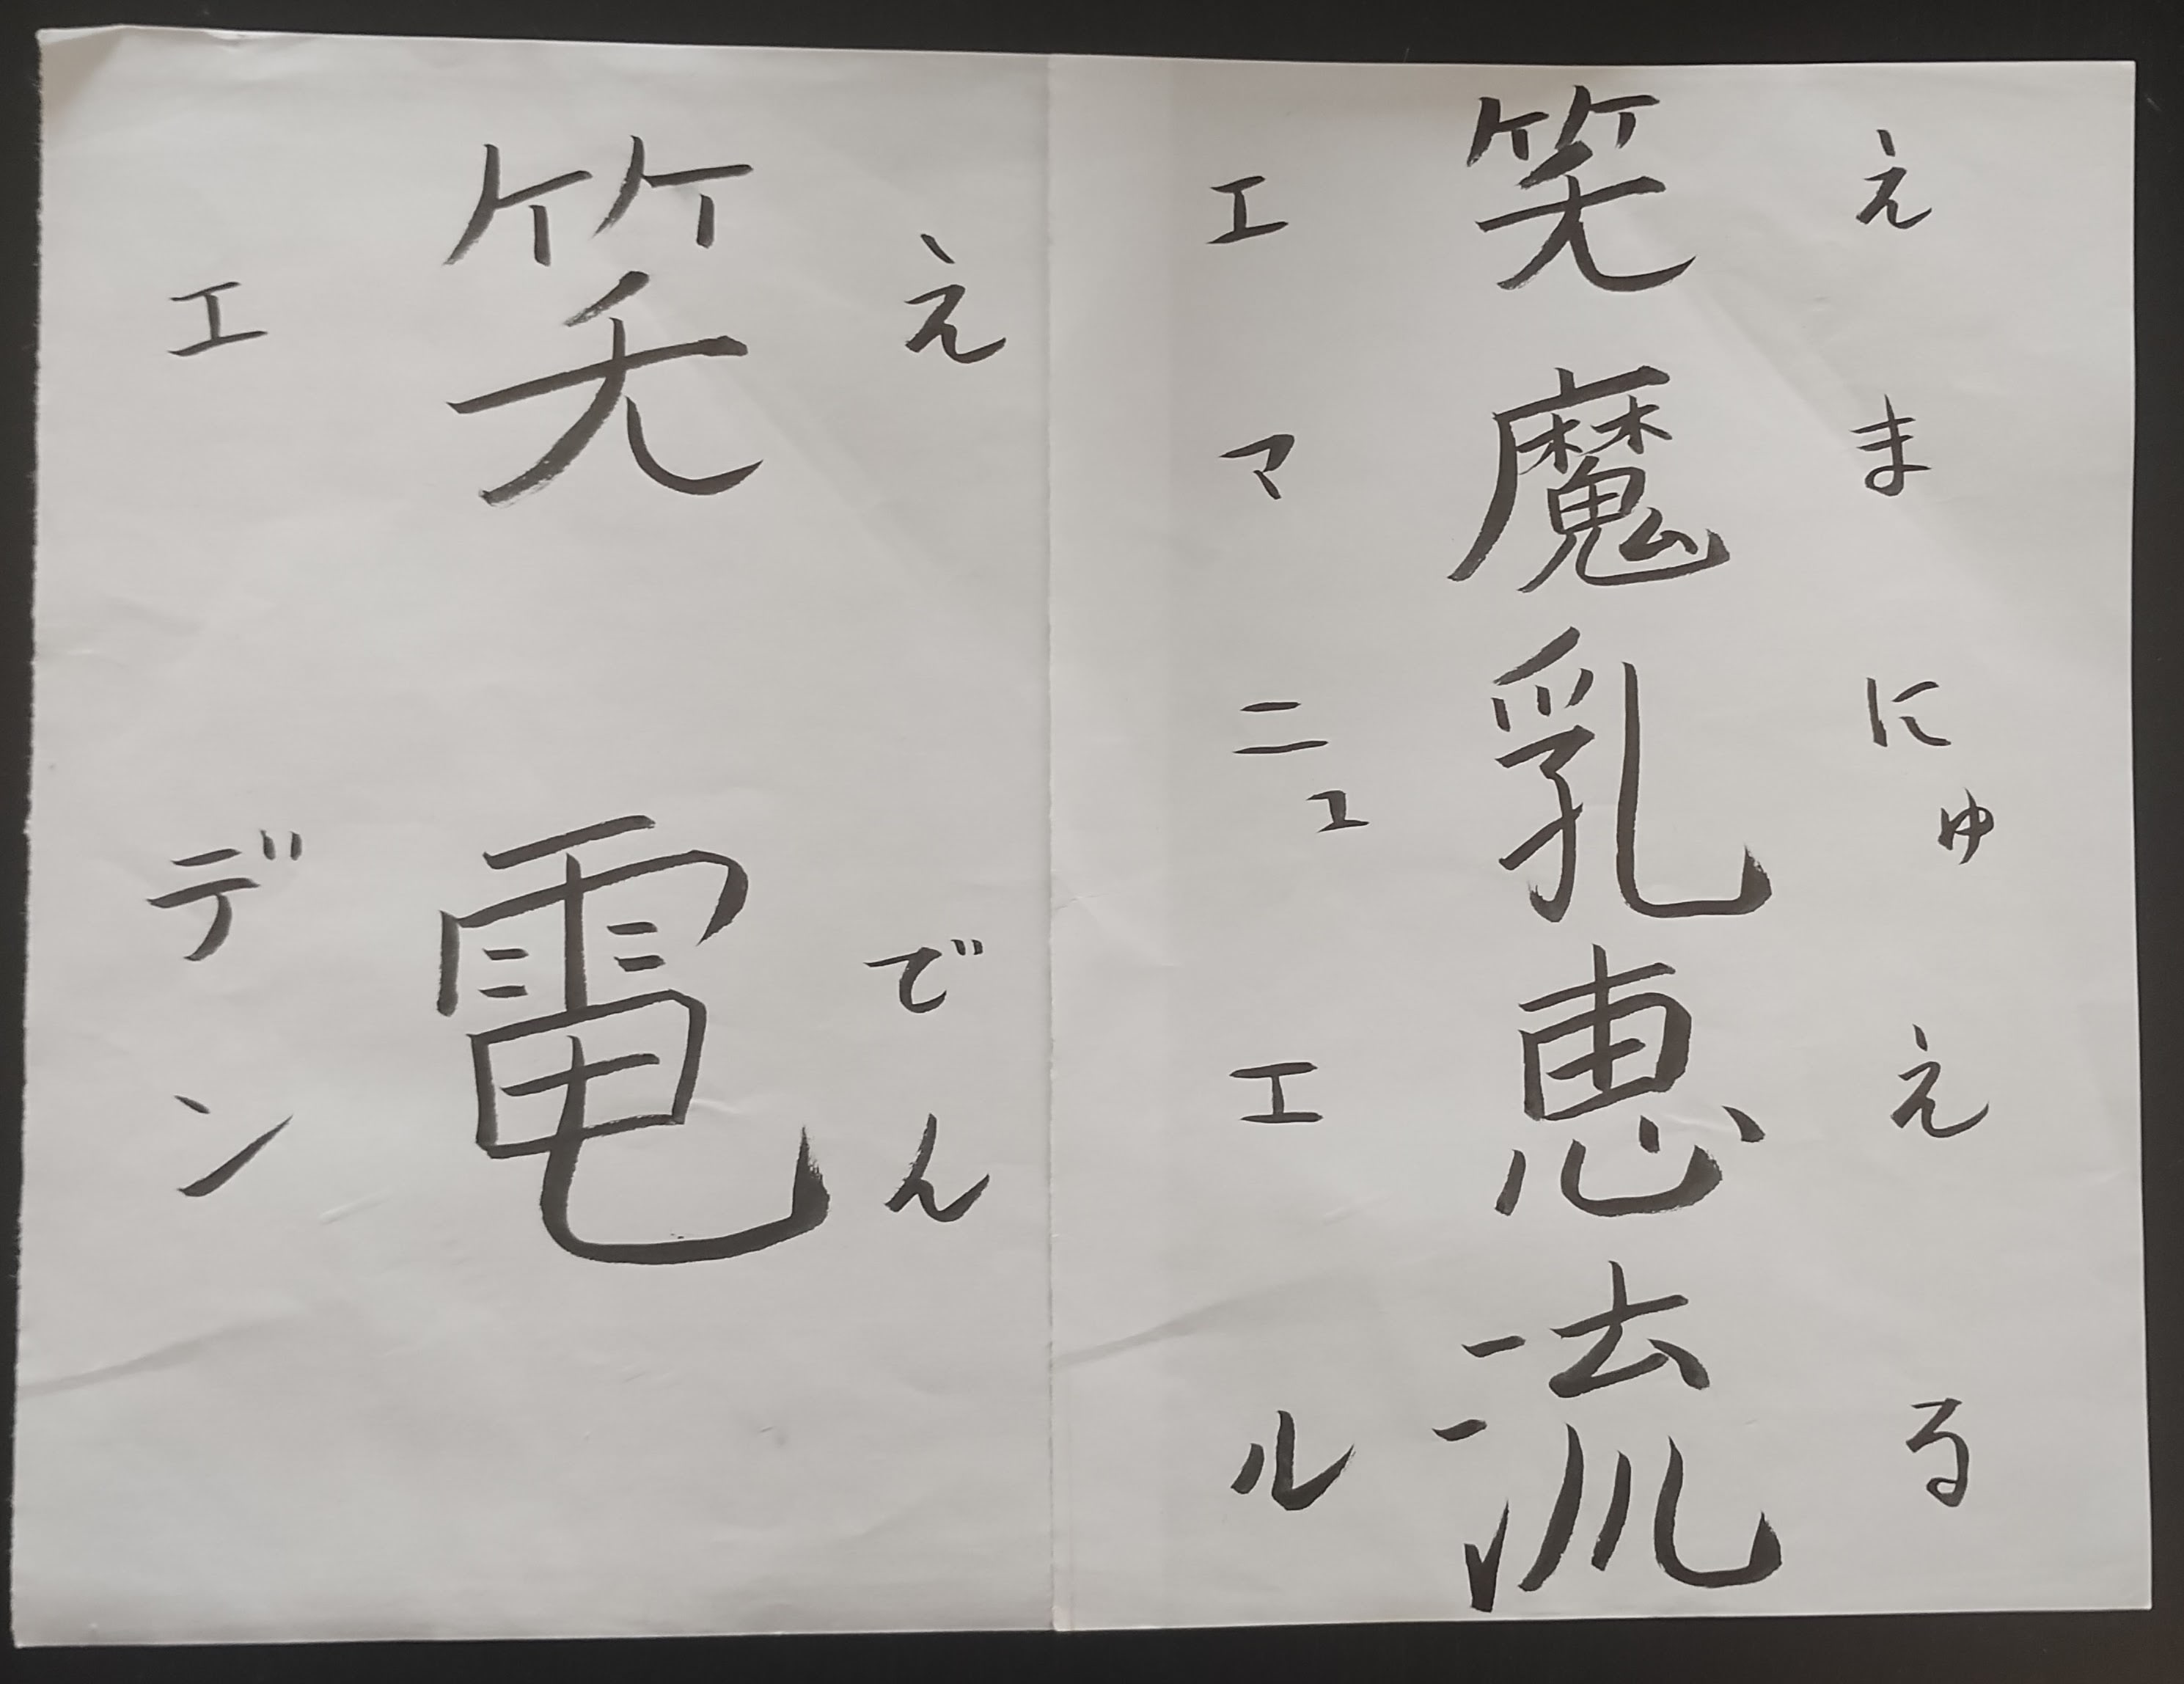 えまにゅえる
笑魔乳恵流
エマニュエル
えでん
笑電
エデン